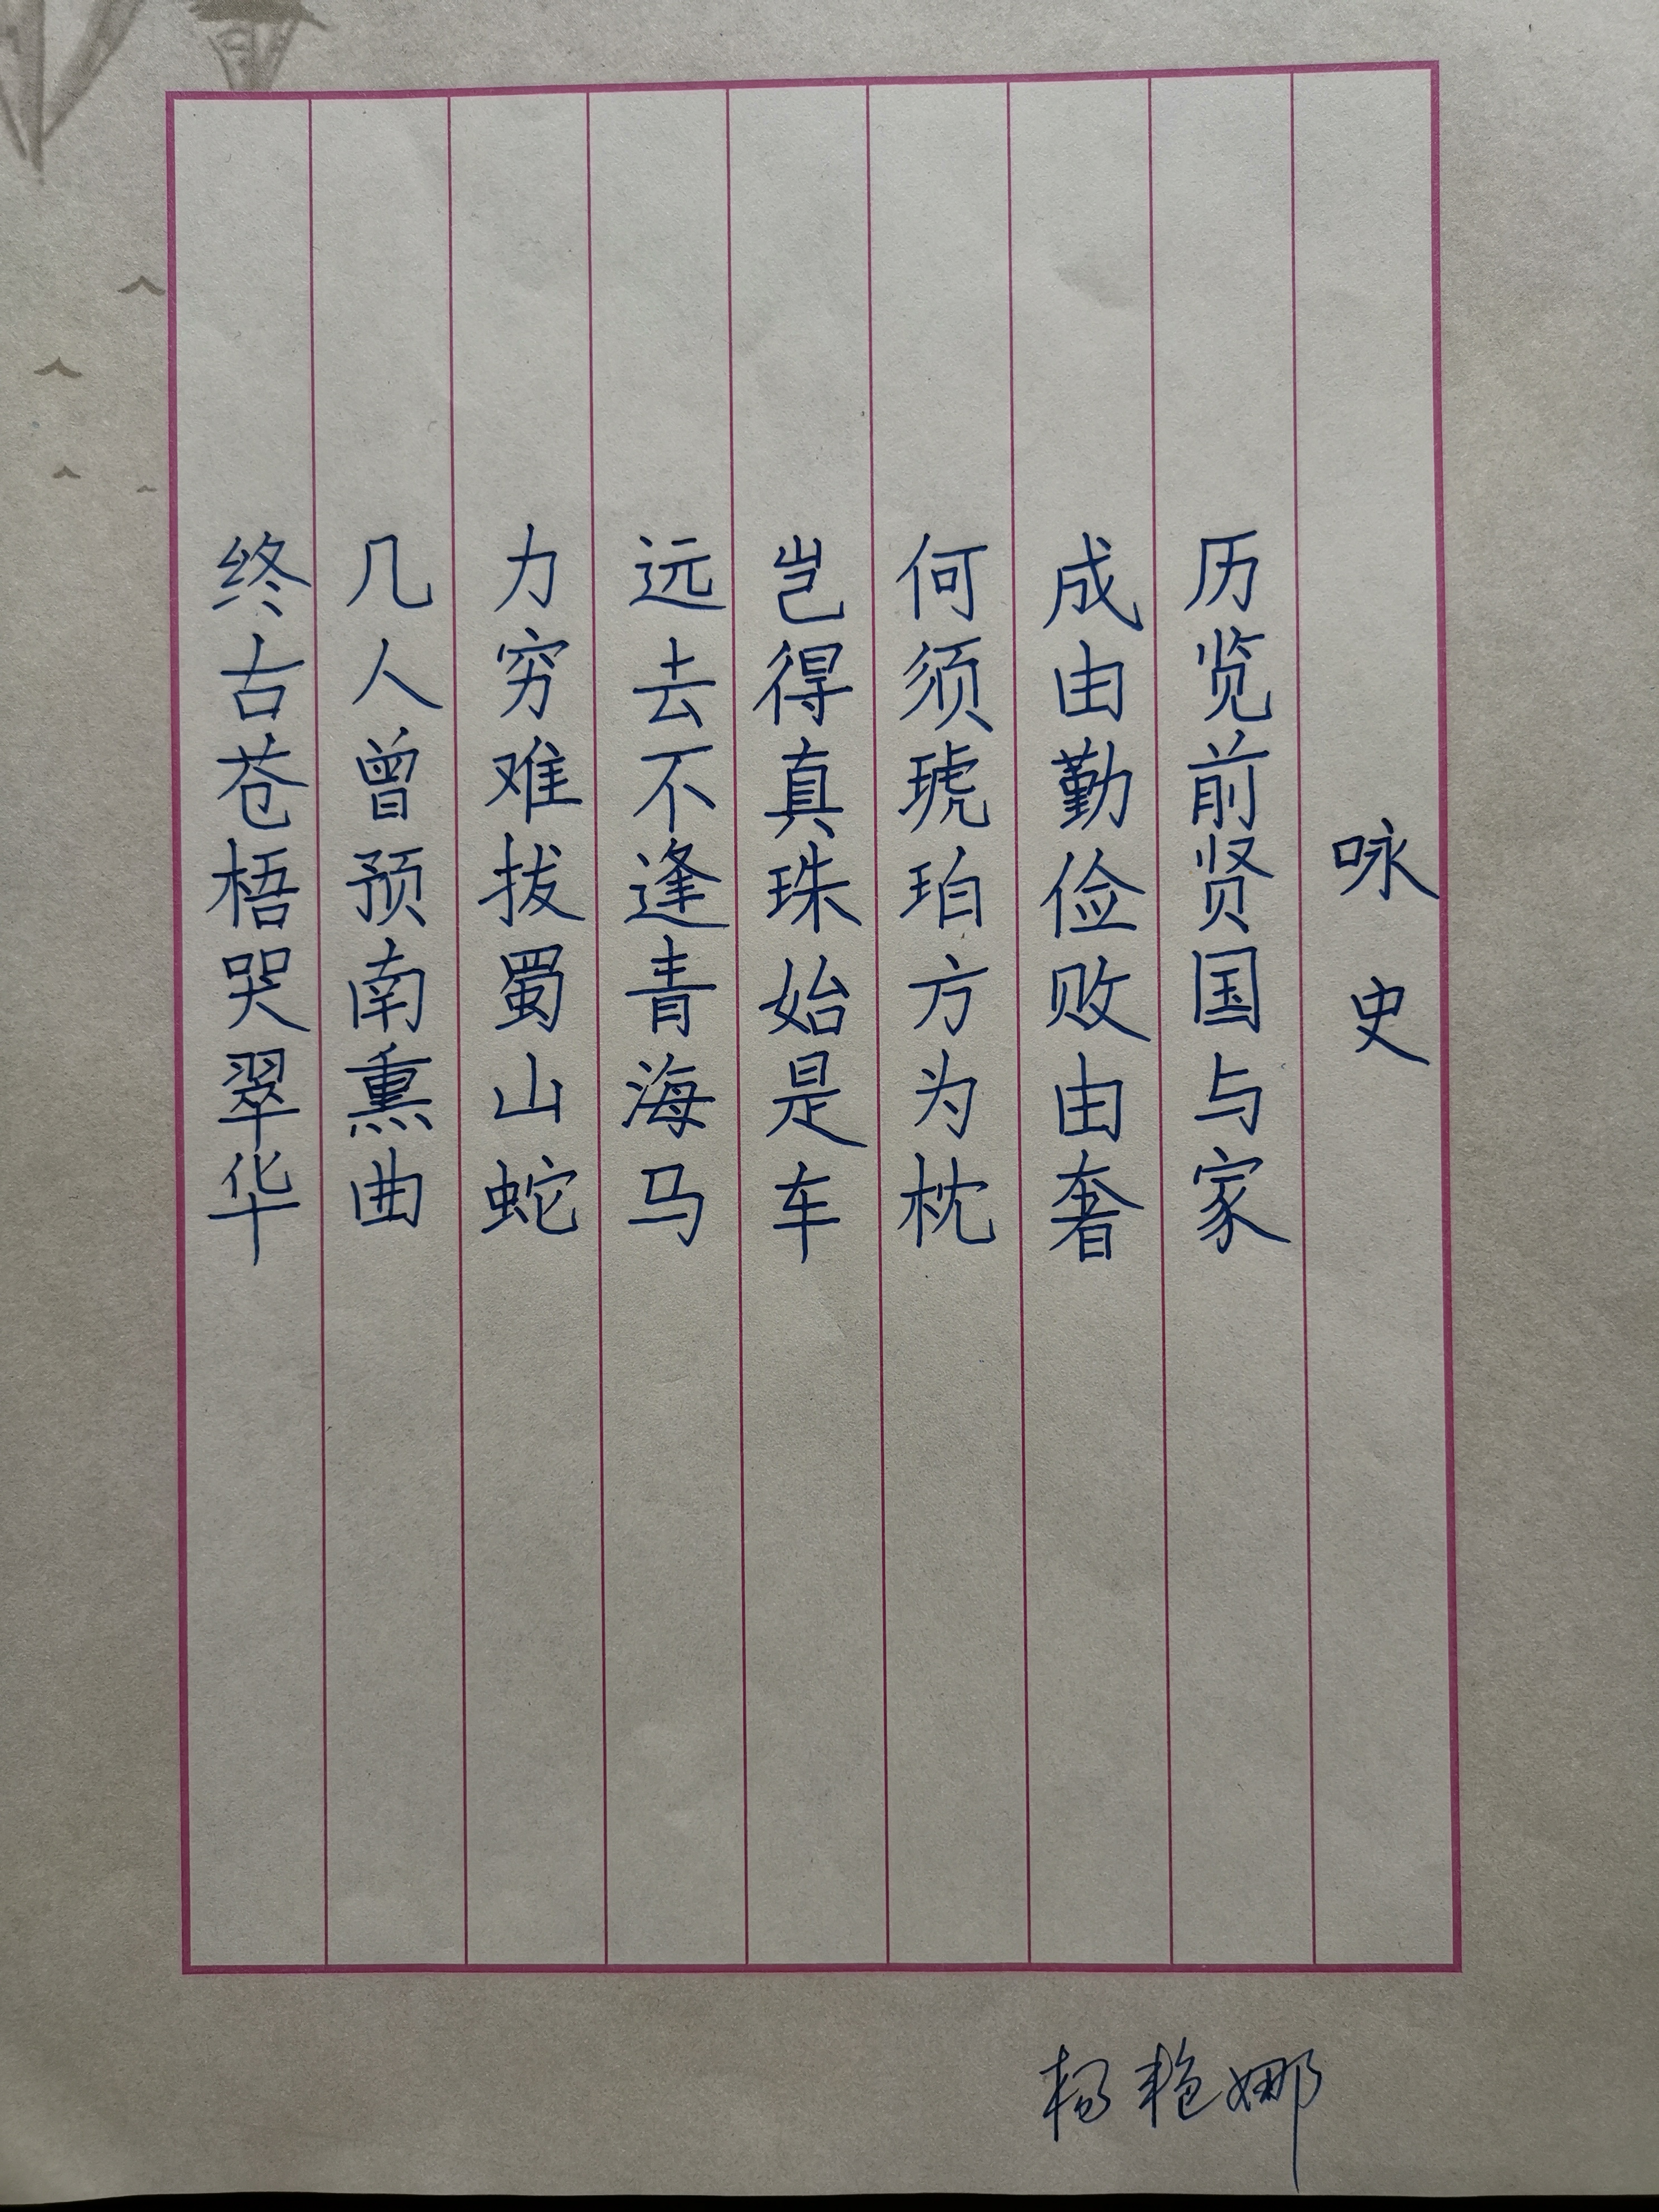 咏史
历览前贤国与家
成由勤俭败由奢
何须琥珀方为枕
岂得真珠始是车
远去不逢青海马
力穷难拔蜀山蛇
几人曾预南熏曲
终古苍梧哭翠华
杨艳娜